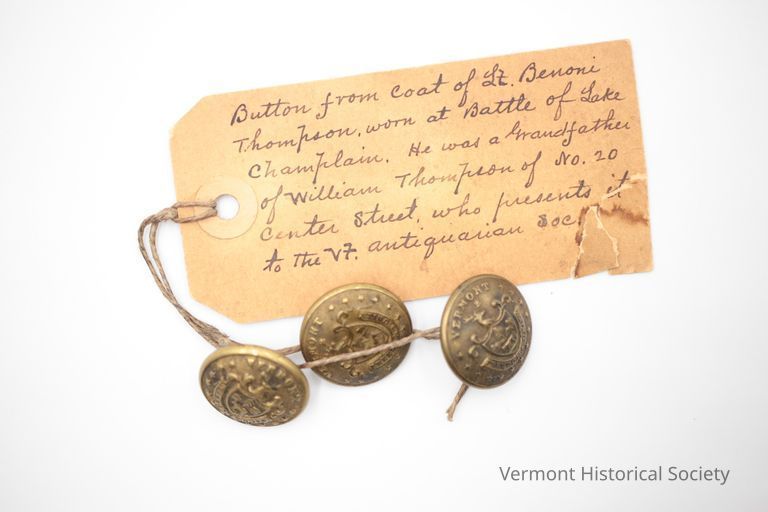 Button from Coat of Lt. Benoni
Thompson, worn at Battle of Lake
Champlain. He was a Grandfather
of William Thompson of No. 20
Center Street, who presents it
to the VT. antiquarian Soc.
VERMONT
VERMONT
VERMONT
Vermont Historical Society